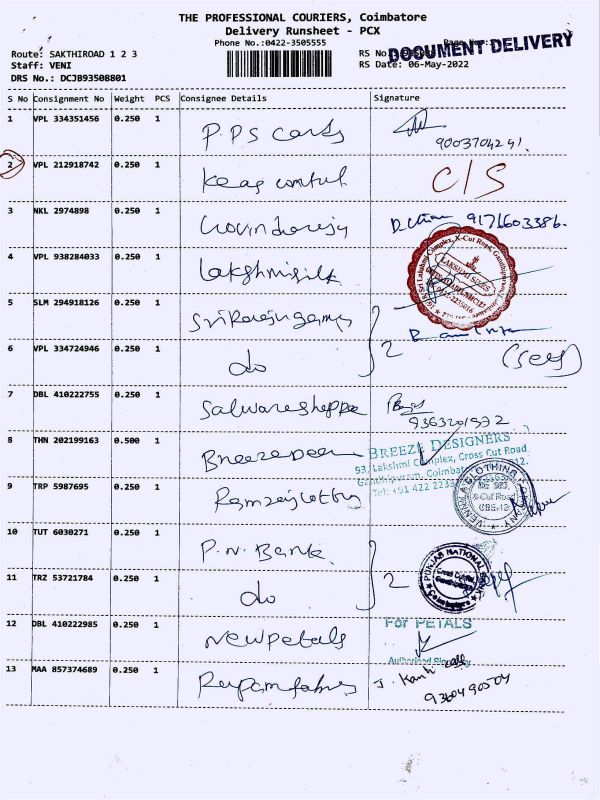 THE PROFESSIONAL COURIERS, Coimbatore
Delivery Runsheet - PCX
Phone No.:0422-3505555
DOCUMENT DELIVERY
Route: SAKTHIROAD 1 2 3
RS No
Staff: VENI
RS Date: 06-May-2022
DRS No.: DCJB93508801
S No Consignment No Weight PCS Consignee Details Signature
1 VPL 334351456 0.250 1 P.P.S cards
9003704291.
2 VPL 212918742 0.250 1 C/S
3 NKL 2974898 0.250 1 9171603386.
4 VPL 938284033 0.250 1 Lakshmi silk
LAKSHMI SILKS
5 SLM 294918126 0.250 1
2
6 VPL 334724946 0.250 1 do
7 DBL 410222755 0.250 1
9363201972
8 THN 202199163 0.500 1
BREEZE DESIGNERS
93, Lakshmi Complex, Cross Cut Road
Tel: +91 422
9 TRP 5987695 0.250 1
X-Cut Road
CBE-12
10 TUT 6030271 0.250 1 P.N. Bank
PUNJAB NATIONAL
2
11 TRZ 53721784 0.250 1 do
For PETALS
12 DBL 410222985 0.250 1 New petals
Authorised Signatory
13 MAA 857374689 0.250 1
9360490504